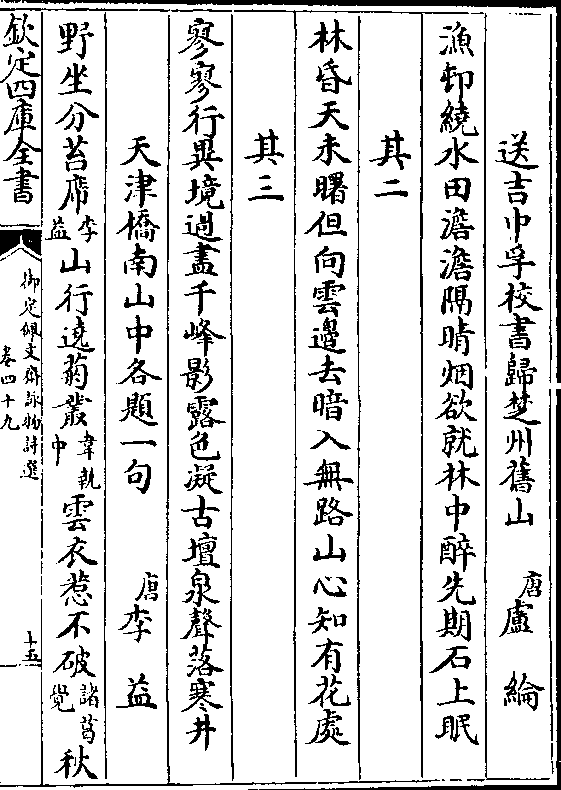 送吉中孚校書歸楚州舊山 唐 盧綸
漁邨繞水田澹澹隔晴烟欲就林中醉先期石上眠
其二
林昏天未曙但向雲邊去暗入無路山心知有花處
其三
寥寥行異境過盡千峰影露色凝古壇泉聲落寒井
天津橋南山中各題一句 唐 李益
野坐分苔席李益山行遶菊叢韋執中雲衣惹不破諸葛覺秋
欽定四庫全書
御定佩文齋詠物詩選
卷四十九
十五